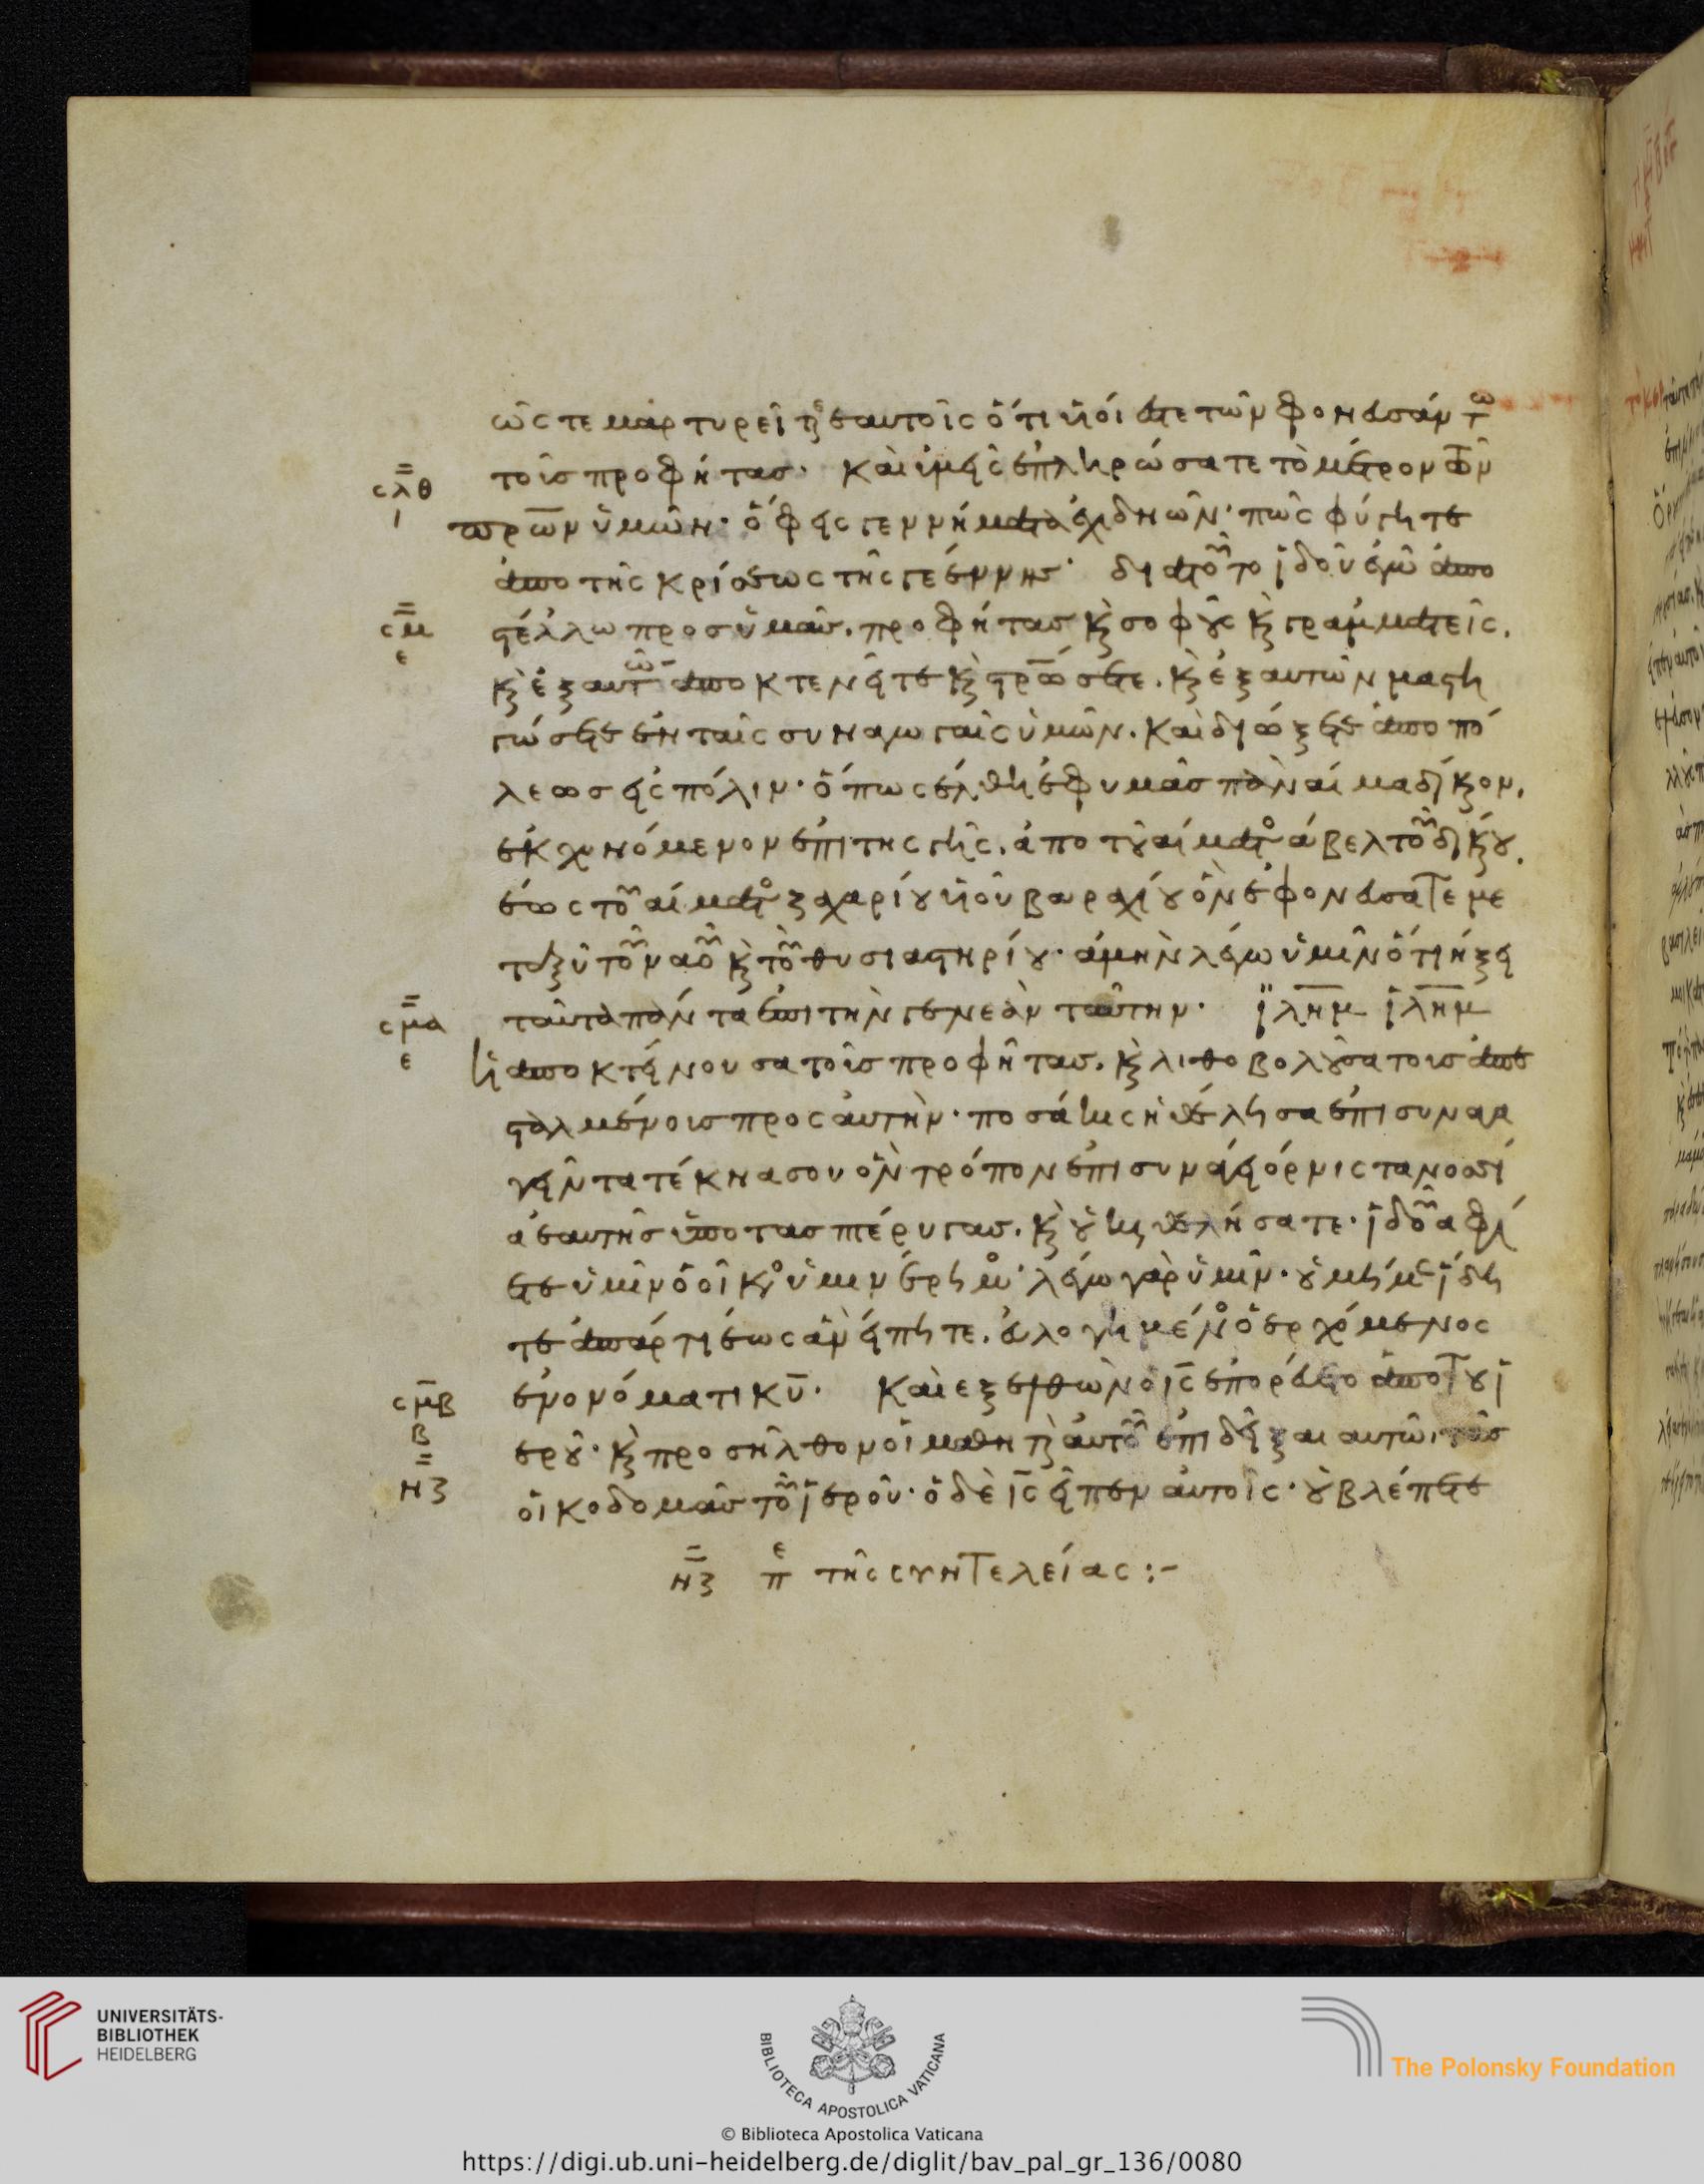 ὥστε μαρτυρεῖτε ἑαυτοῖς ὅτι υἱοί ἐστε τῶν φονευσάντων
τοὺς προφήτας· καὶ ὑμεῖς ἐπληρώσατε τὸ μέτρον τῶν
σλθ
ι
πρων ὑμῶν· ὄφεις γεννήματα ἐχιδνῶν· πῶς φύγητε
ἀπὸ τῆς κρίσεως τῆς γεέννης· διὰ τοῦτο ἰδοὺ ἐγὼ ἀπο
σμ
ε
στέλλω πρὸς ὑμᾶς. προφήτας καὶ σοφοὺς καὶ γραμματεῖς.
καὶ ἐξ αὐτῶν ἀποκτενεῖτε καὶ στρώσετε. καὶ ἐξ αὐτῶν μαστι
γώσετε ἐν ταῖς συναγωγαῖς ὑμῶν. καὶ διώξετε ἀπὸ πό
λεως εἰς πόλιν· ὅπως ἔλθῃ ἐφ ὑμᾶς πᾶν αἷμα δίκαιον.
ἐκχυνόμενον ἐπὶ τῆς γῆς. ἀπὸ τοῦ αἵματος ἄβελ τοῦ δικαίου.
ἕως τοῦ αἵματος ζαχαρίου υἱοῦ βαραχίου ὃν ἐφονεύσατε με
ταξὺ τοῦ ναοῦ καὶ τοῦ θυσιαστηρίου· ἀμὴν λέγω ὑμῖν ὅτι ἥξει
σμα
ε
ταῦτα πάντα ἐπὶ τὴν γενεὰν ταύτην· ϊλημ ϊλημ
ἡ ἀποκτείνουσα τοὺς προφήτας. καὶ λιθοβολοῦσα τοὺς ἀπε
σταλμένους πρὸς αὐτήν· ποσάκις ἠθέλησα ἐπισυναγα
γεῖν τὰ τέκνα σου ὃν τρόπον ἐπισυνάγει ὄρνις τὰ νοσσί
α ἑαυτῆς ὑπὸ τὰς πτέρυγας. καὶ οὐκ ἠθελήσατε· ἰδοῦ ἀφί
εται ὑμῖν ὁ οἶκος ὑμῶν ἔρημος· λέγω γὰρ ὑμῖν· οὐ μή με ἴδη
τε ἀπάρτι ἕως ἂν εἴπητε. εὐλογημένος ὁ ἐρχόμενος
σμβ
β
ἐν ὀνόματι κυ· καὶ ἐξελθὼν ὁ ις ἐπορεύετο ἀπὸ τοῦ ἱ
ερου· καὶ προσῆλθον οἱ μαθηταὶ αὐτοῦ ἐπιδεῖξαι αὐτῷ τὰς
νζ
οἰκοδομὰς τοῦ ἱεροῦ· ὁ δὲ ις εἶπεν αὐτοῖς· οὐ βλέπετε
νζ πε τῆς συντελείας :-
UNIVERSITÄTS-
BIBLIOTHEK
HEIDELBERG
BIBLIOTECA APOSTOLICA VATICANA
The Polonsky Foundation
© Biblioteca Apostolica Vaticana
https://digi.ub.uni-heidelberg.de/diglit/bav_pal_gr_136/0080